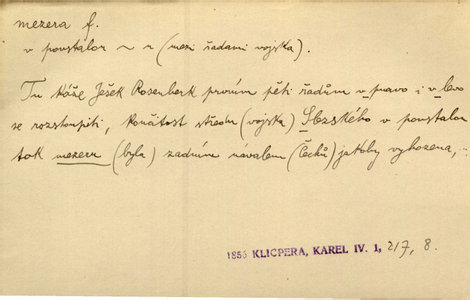 mezera f.
v povstalou ~ r (mezi řadami vojska).
Tu káže Ješek Rosenberk prvním pěti řadům v pravo i v levo
se rozstoupiti, končitost středu (vojska) Slezského v povstalou
tak mezeru (byla) zadním návalem (Čechů) jakoby vyhozena, ..
1856 KLICPERA, KAREL IV. 1, 217, 8.